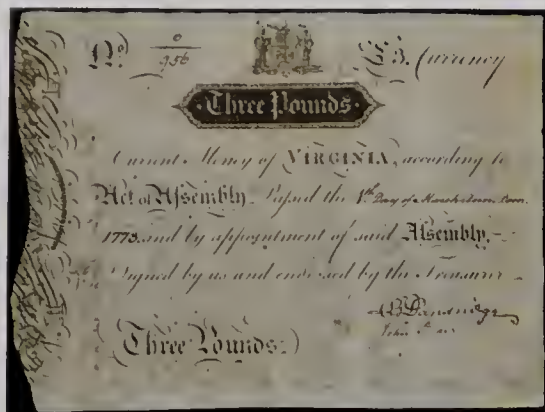 No. 0
956
£3. Currency
Three Pounds
Current Money of VIRGINIA, according to
Act of Assembly. Passed the Day of March
1773. and by appointment of said Assembly.
Signed by us and endorsed by the Treasurer
Dandridge
John
Three Pounds.